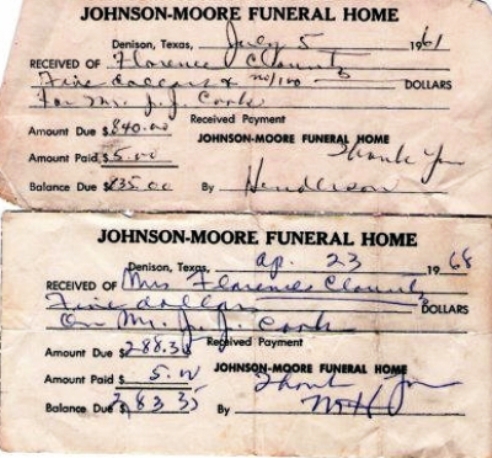 JOHNSON-MOORE FUNERAL HOME
Denison, Texas, July 5 1961
RECEIVED OF Florence
Five dollars & no/100 DOLLARS
For Mr. J. J.
Received Payment
Amount Due $840.00
JOHNSON-MOORE FUNERAL HOME
Thank You
Amount Paid $5.00
Balance Due $835.00 By Henderson
JOHNSON-MOORE FUNERAL HOME
Denison, Texas, Ap. 23 1968
RECEIVED OF Mrs Florence
Five dollars DOLLARS
On Mr. J. J.
Amount Due $288.35 Received Payment
JOHNSON-MOORE FUNERAL HOME
Amount Paid $5.00 Thank You
Balance Due $283 35 By